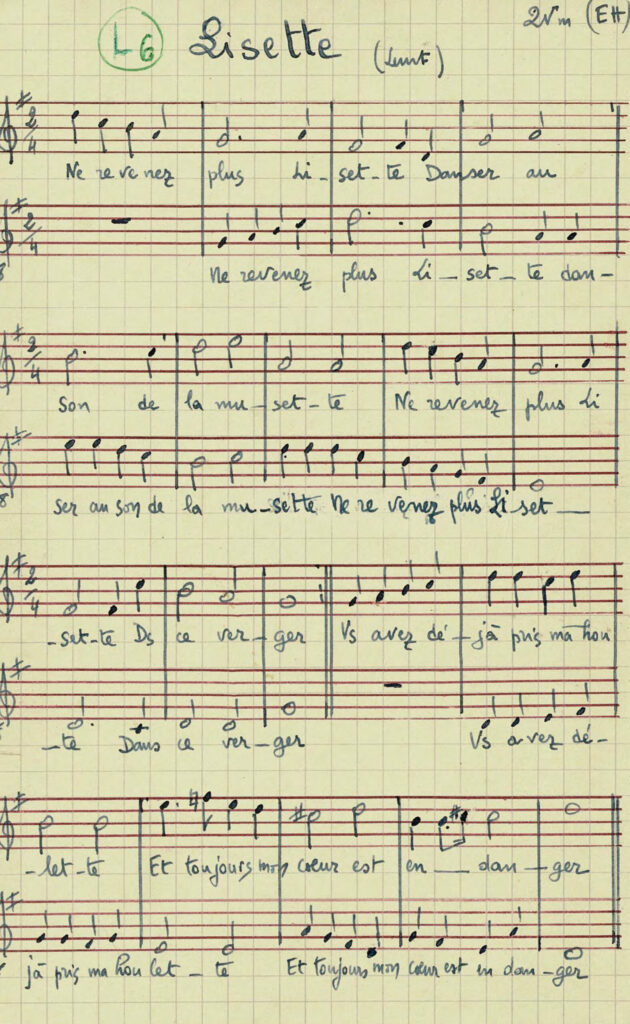 L6 Lisette (Lent) 2Vm (EH)
2/4
Ne re ve nez plus Li - set - te Danser au
2/4
8 Ne revenez plus Li - set - te dan -
2/4
son de la mu - set - te Ne revenez plus Li
8 ser au son de la mu - sette Ne re venez plus Li set
2/4
- set - te Ds ce ver - ger Vs avez dé - jà pris ma hou
- te Dans ce ver - ger Vs avez dé -
- let - te Et toujours mon cœur est en dan - ger
jà pris ma hou let - te Et toujours mon cœur est en dan - ger